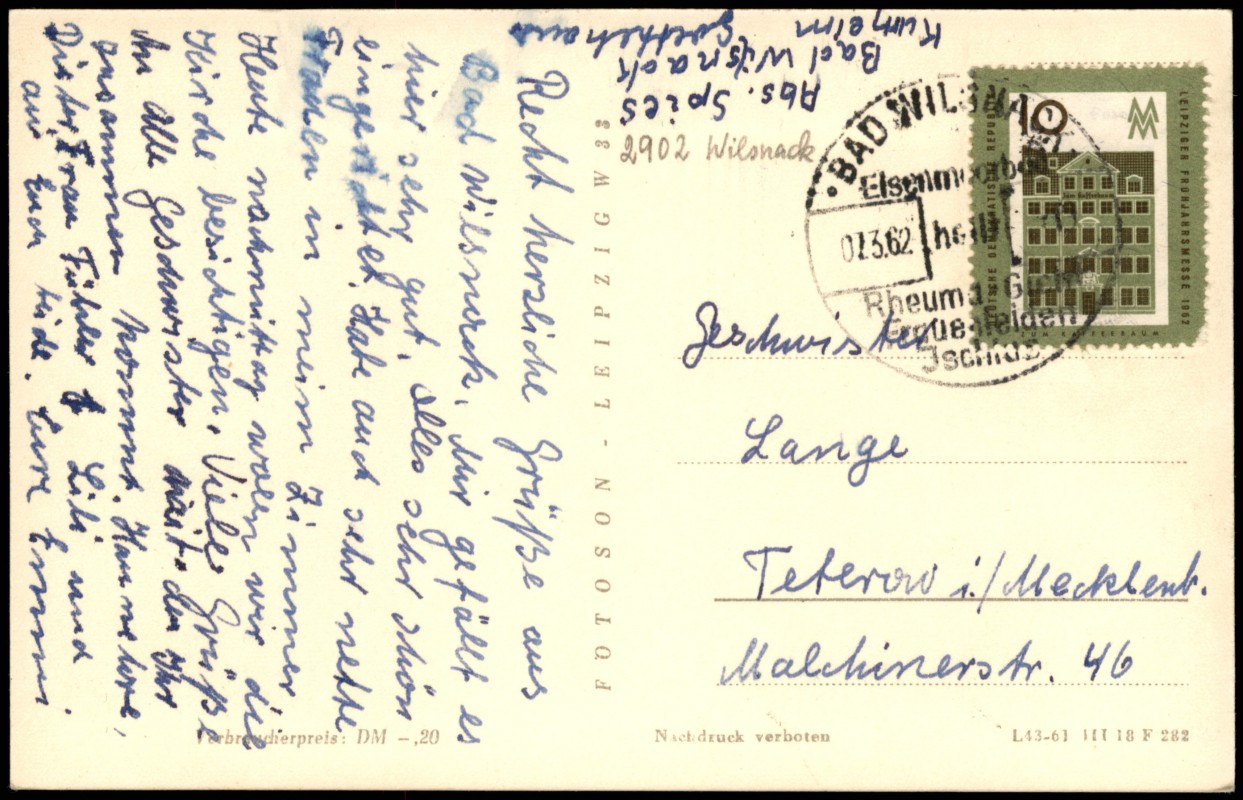 Abs. Spies
Bad Wilsnack
Kurheim
Goethehaus
2902 Wilsnack
Recht herzliche Grüße aus
Bad Wilsnack. Mir gefällt es
hier sehr gut. Alles sehr schön
eingerichtet. Habe auch sehr nette
Frauen in meim Zimmer.
Heute nachmittag wolen wir die
Kirche besichtigen. Viele Grüße
An alle Geschwister mit den Ihr
zusammen kommt. Hannelore,
Dieter, Frau Lili und
auf Euch beide. Eure Emmi.
FOTOSON - LEIPZIG W 33
BAD WILSNACK
Eisenmoorbad
07.3.62
heilt
Rheuma Gicht
Frauenleiden
Ischias
DEUTSCHE DEMOKRATISCHE REPUBLIK
10
MM
LEIPZIGER FRÜHJAHRSMESSE 1962
ZUM KAFFEEBAUM
Geschwister
Lange
Teterow i./Mecklenb.
Malchinerstr. 46
Verbraucherpreis: DM –,20
Nachdruck verboten
L43-61 III 18 F 282